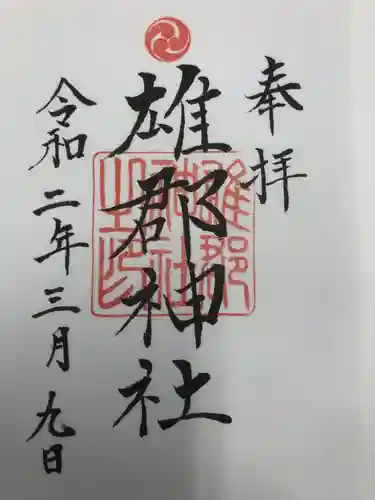 奉拝
雄郡神社
雄郡神社之印
令和二年三月九日